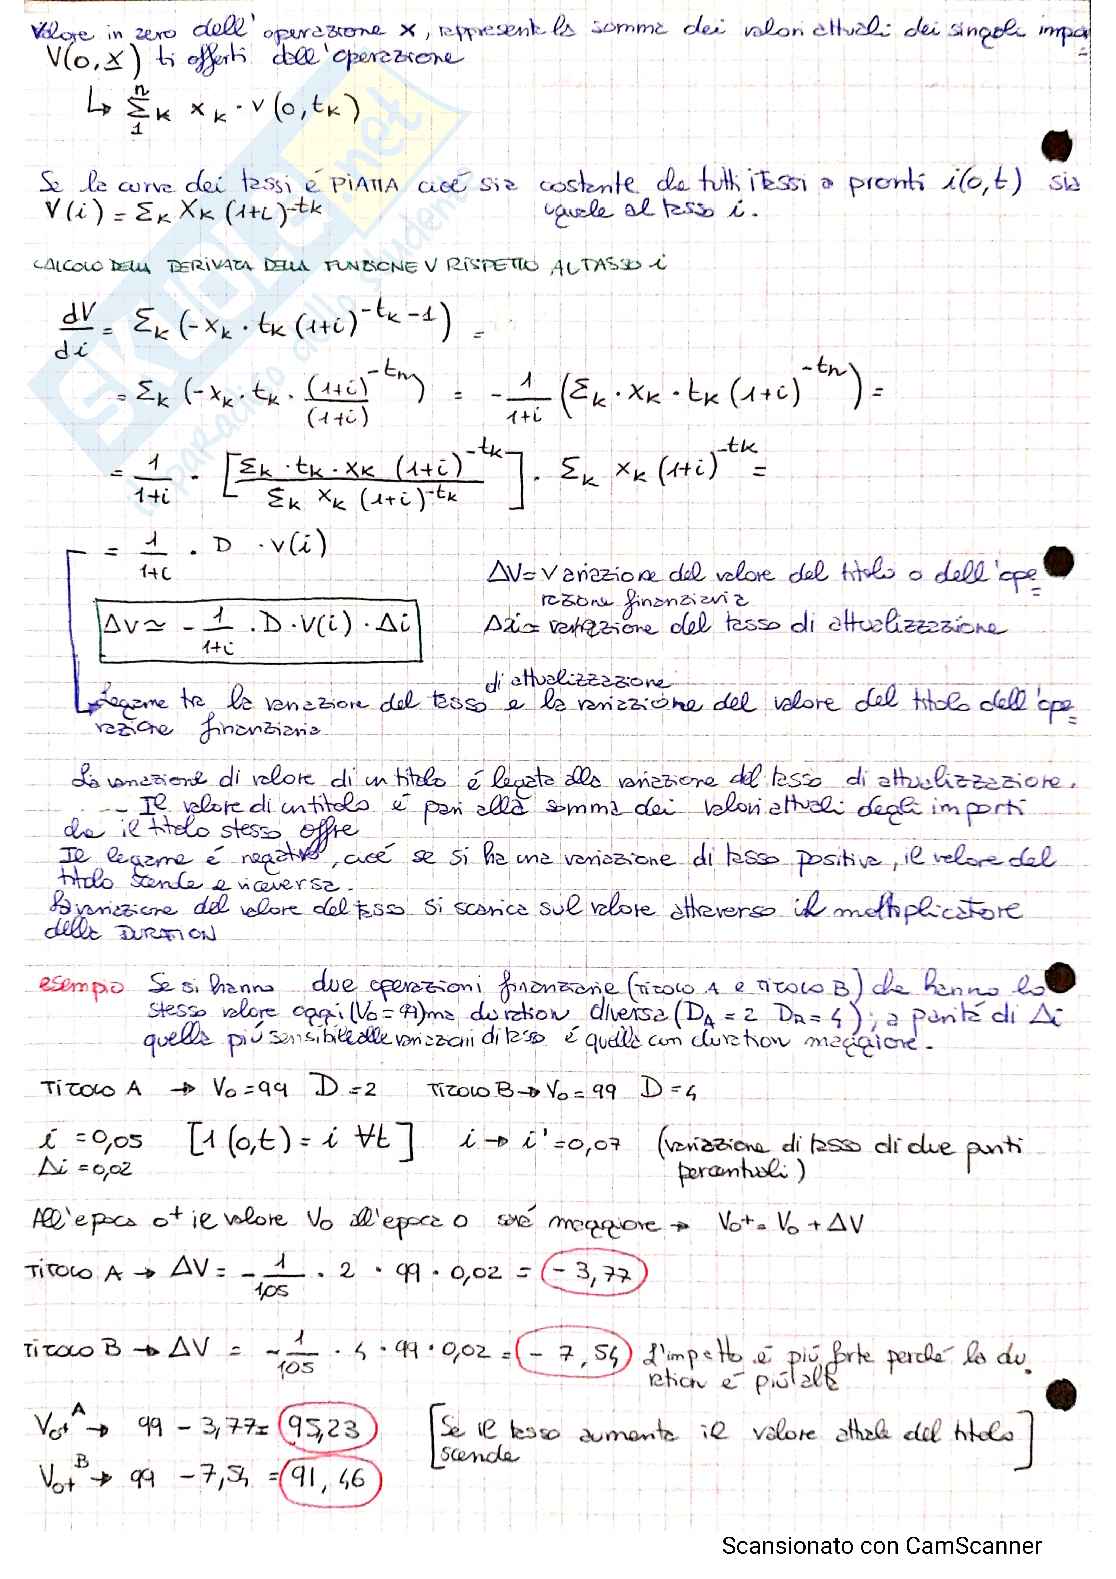 Valore in zero dell'operazione x, rappresenta la somma dei valori attuali dei singoli impor=
V(0,x) ti offerti dall'operazione
↳ Σ₁ⁿₖ xₖ · v(0,tₖ)
Se la curva dei tassi é PIATTA cioé sia costante da tutti i tassi a pronti i(0,t) sia
V(i) = Σₖ Xₖ (1+i)^-tₖ uguale al tasso i.
CALCOLO DELLA DERIVATA DELLA FUNZIONE V RISPETTO AL TASSO i
dV/di = Σₖ (-xₖ · tₖ (1+i)^-tₖ-1) =
= Σₖ (-xₖ · tₖ · (1+i)^-tₙ/(1+i)) = - 1/1+i (Σₖ · xₖ · tₖ (1+i)^-tₙ) =
= 1/1+i · [Σₖ · tₖ · xₖ (1+i)^-tₖ / Σₖ xₖ (1+i)^-tₖ] · Σₖ xₖ (1+i)^-tₖ =
= 1/1+i · D · v(i)
ΔV = Variazione del valore del titolo o dell'ope=
razione finanziaria
Δv ≃ - 1/1+i · D · V(i) · Δi
Δi = variazione del tasso di attualizzazione
di attualizzazione
Legame tra la variazione del tasso e la variazione del valore del titolo dell'ope=
razione finanziaria
La variazione di valore di un titolo é legata alla variazione del tasso di attualizzazione.
- Il valore di un titolo é pari alla somma dei valori attuali degli importi
che il titolo stesso offre
Il legame é negativo, cioé se si ha una variazione di tasso positiva, il valore del
titolo scende e viceversa.
La variazione del valore del tasso si scarica sul valore attraverso il moltiplicatore
della DURATION
esempio Se si hanno due operazioni finanziarie (TITOLO A e TITOLO B) che hanno lo
stesso valore oggi (V₀ = 99) ma duration diversa (D_A = 2 D_B = 4); a parità di Δi
quella più sensibile alle variazioni di tasso é quella con duration maggiore.
TITOLO A → V₀ = 99 D = 2 TITOLO B → V₀ = 99 D = 4
i = 0,05 [1(0,t) = i ∀t] i → i' = 0,07 (variazione di tasso di due punti
Δi = 0,02 percentuali)
All'epoca 0⁺ il valore V₀ all'epoca 0 sarà maggiore → V₀⁺ = V₀ + ΔV
TITOLO A → ΔV = - 1/1,05 · 2 · 99 · 0,02 = -3,77
TITOLO B → ΔV = - 1/105 · 4 · 99 · 0,02 = -7,54 L'impatto é più forte perché la du.
ration é più alta
V₀⁺ᴬ → 99 - 3,77 = 95,23 [Se il tasso aumenta il valore attuale del titolo
scende]
V₀⁺ᴮ → 99 - 7,54 = 91,46
SKUOLA.net
il paradiso dello studente
Scansionato con CamScanner